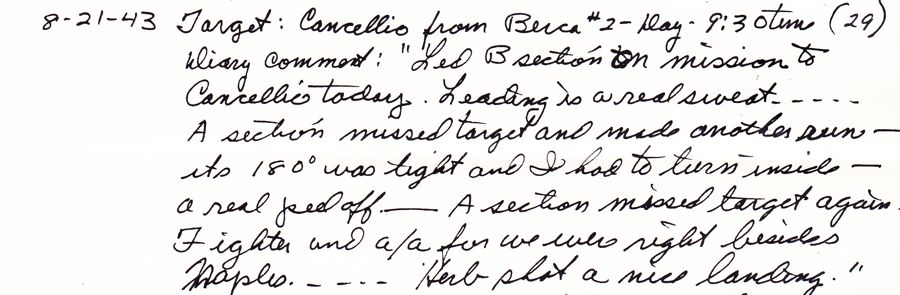 8-21-43 Target: Cancellio from Berca #2 - Day - 9:30 time (29)
Diary comment: "Led B section on mission to
Cancellio today. Leading is a real sweat. - - - -
A section missed target and made another run —
its 180° was tight and I had to turn inside —
a real peed off — A section missed target again.
Fighter and a/a for we were right besides
Naples. - - - - Herb shot a nice landing."